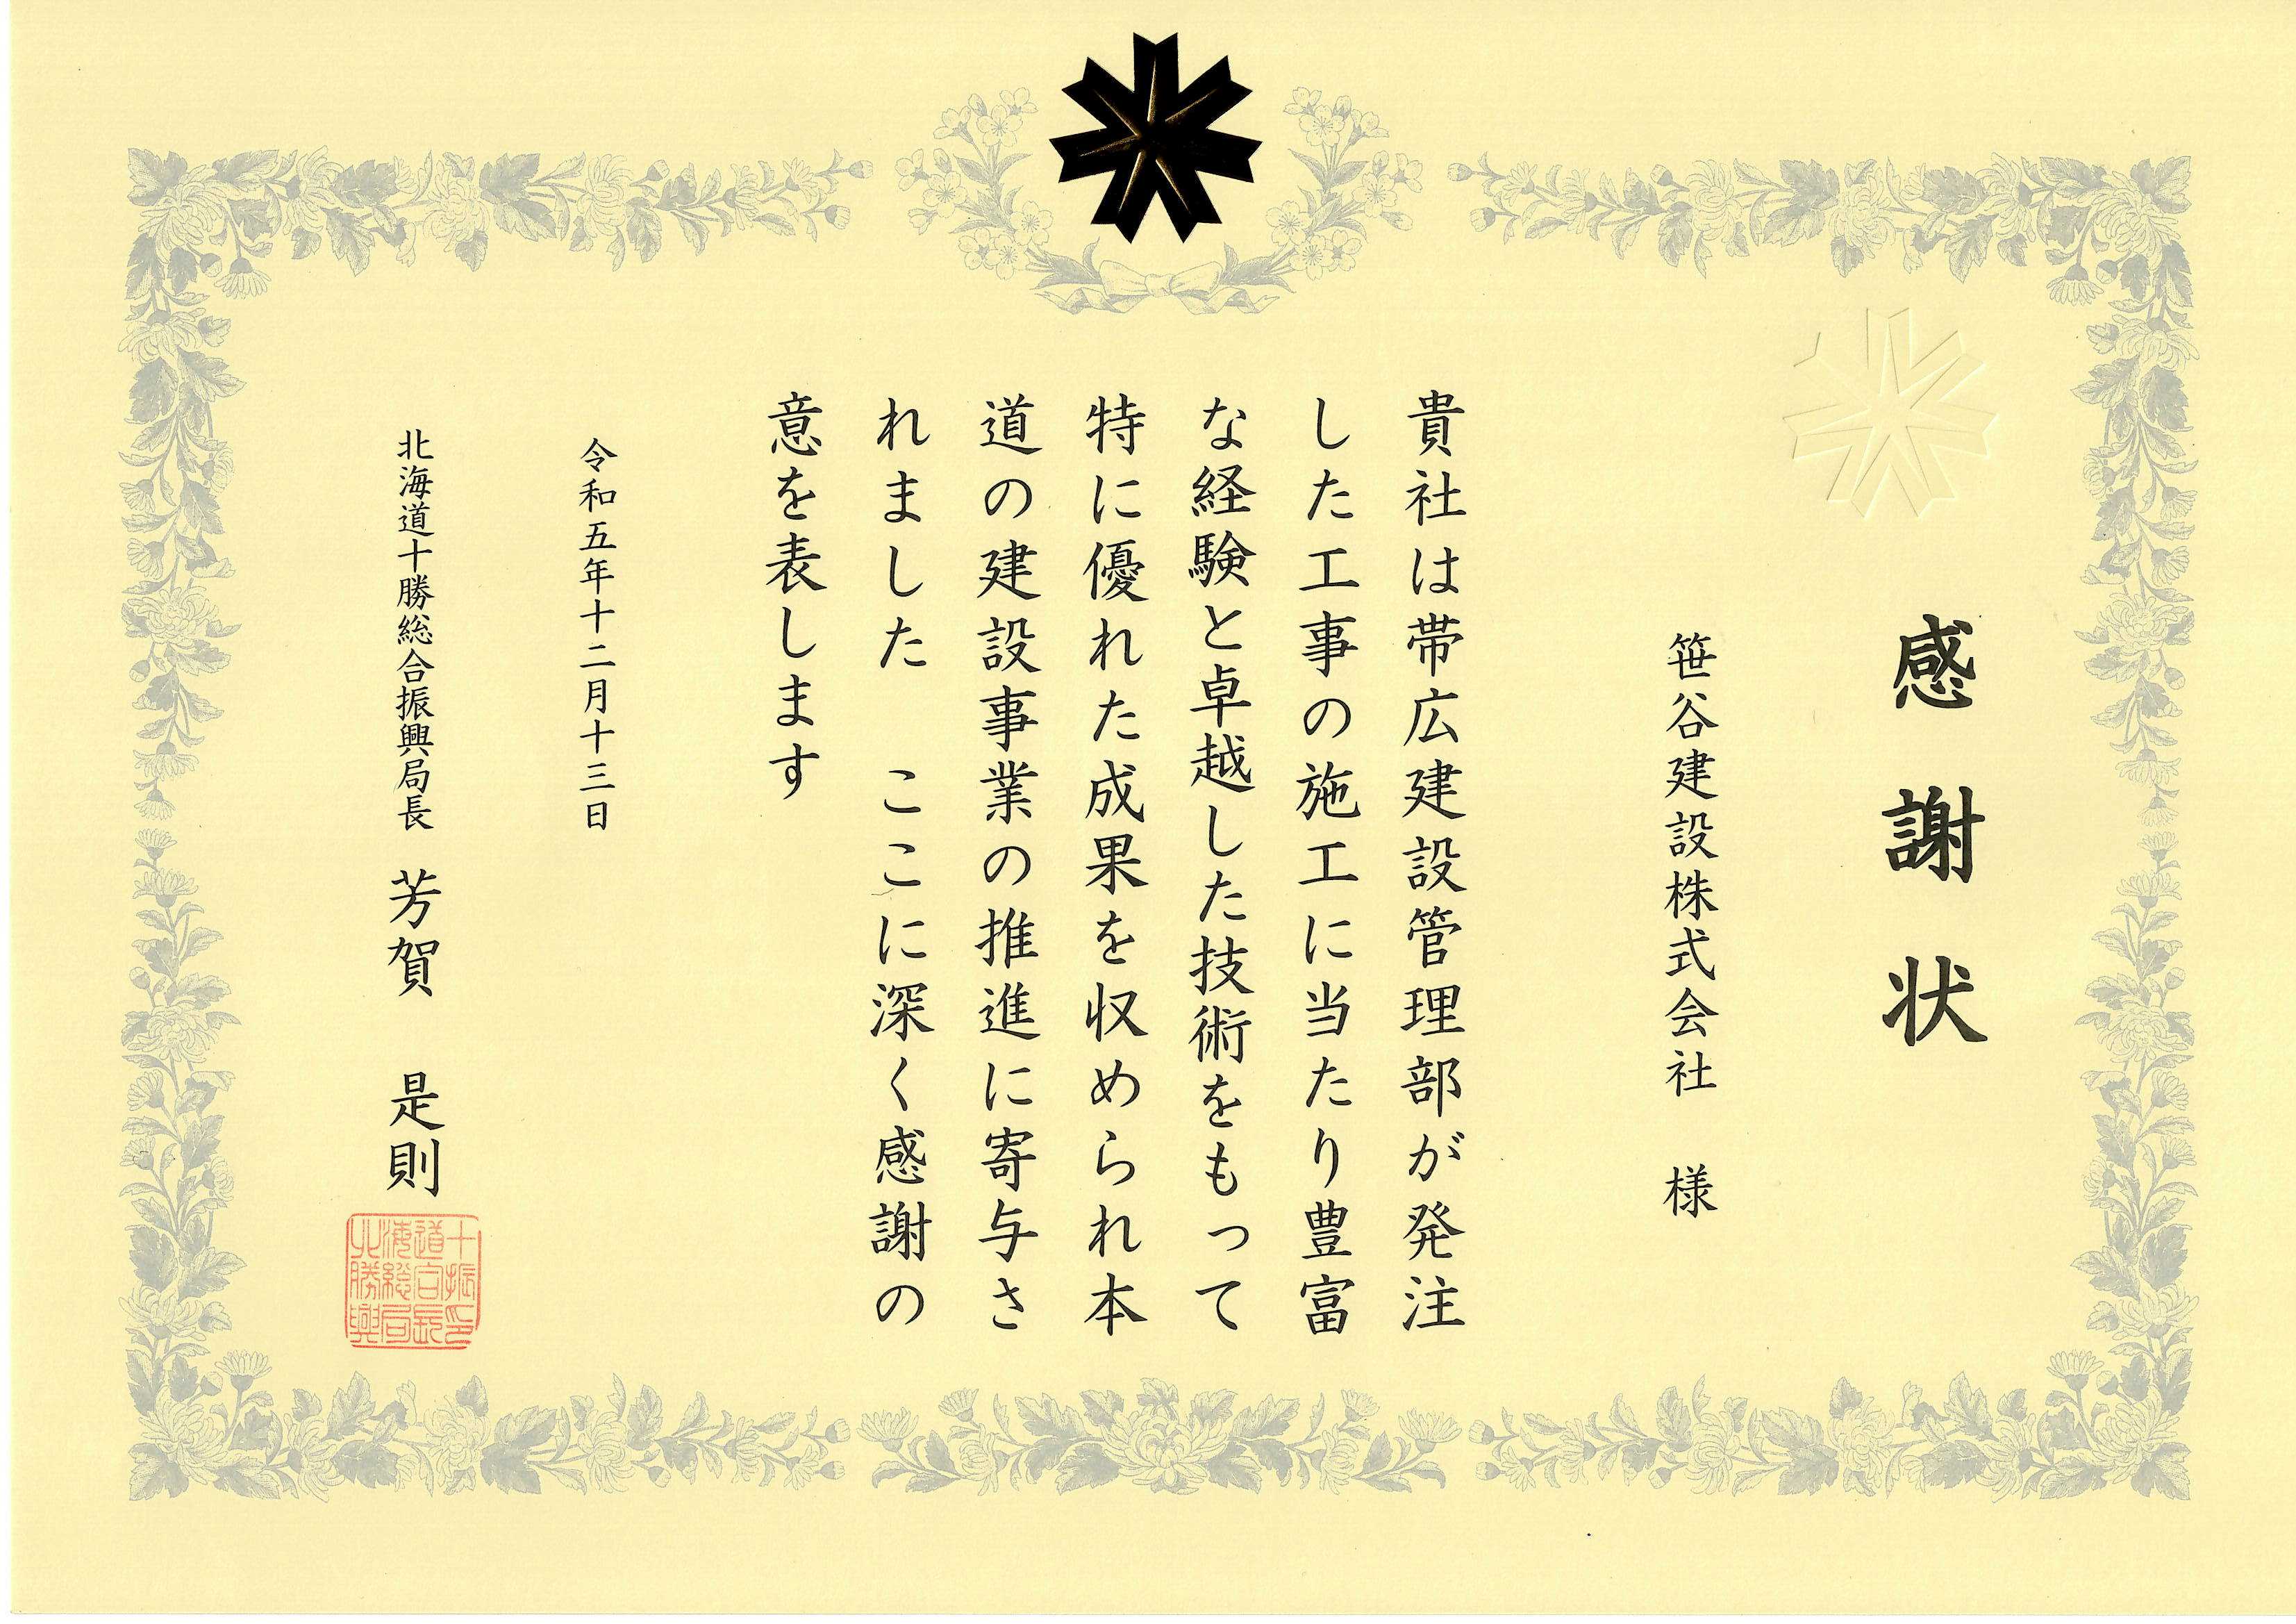 感謝状
笹谷建設株式会社　様
貴社は帯広建設管理部が発注
した工事の施工に当たり豊富
な経験と卓越した技術をもって
特に優れた成果を収められ本
道の建設事業の推進に寄与さ
れました　ここに深く感謝の
意を表します
令和五年十二月十三日
北海道十勝総合振興局長　芳賀　是則
北海道十
勝総合振
興局長印